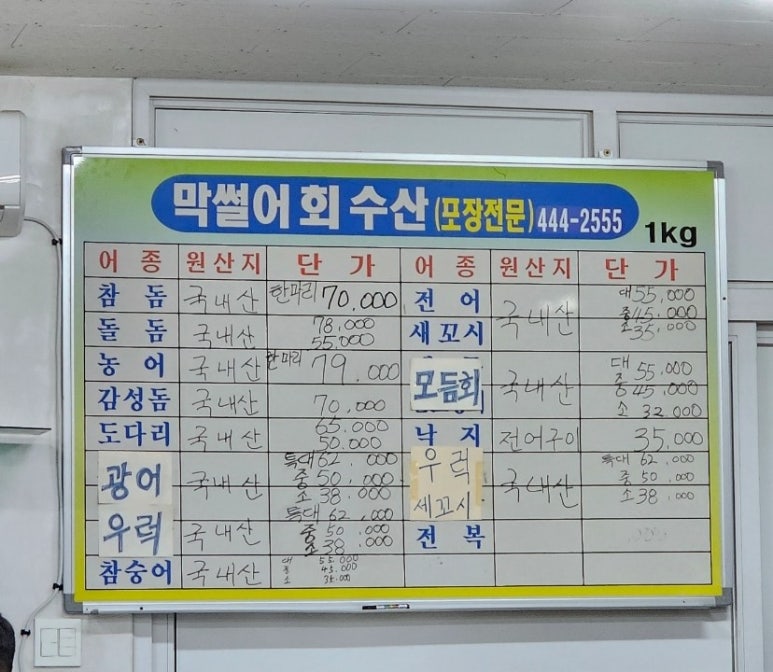 막썰어회수산(포장전문)444-2555
1kg
어종 원산지 단가 어종 원산지 단가
참돔 국내산 한마리 70.000
돌돔 국내산 78.000
55.000
농어 국내산 한마리 79.000
감성돔 국내산 70.000
도다리 국내산 65.000
50.000
광어 국내산 특대 62.000
중 50.000
소 38.000
우럭 국내산 특대 62.000
중 50.000
소 38.000
참숭어 국내산 대 55.000
중 45.000
소 35.000
전어 새꼬시 국내산 대 55.000
중 45.000
소 35.000
모듬회 국내산 대 55.000
중 45.000
소 32.000
낙지 전어구이 35.000
우럭 세꼬시 국내산 특대 62.000
중 50.000
소 38.000
전복